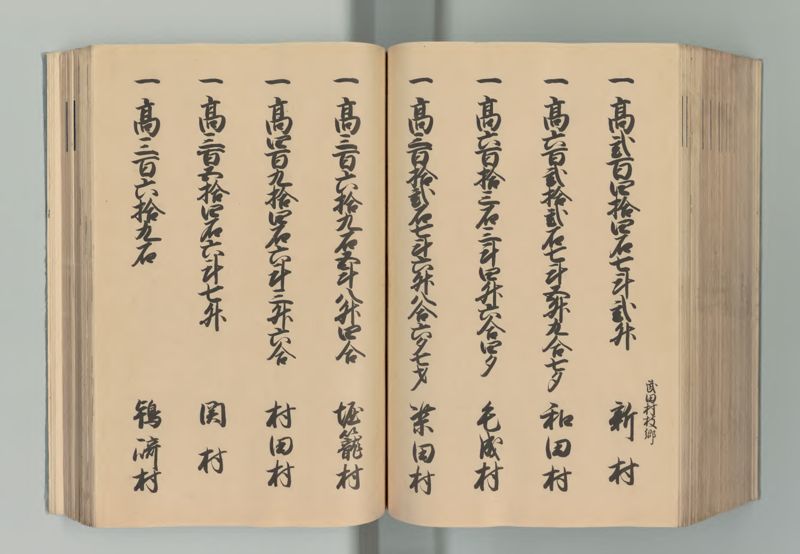 一 高弐百四拾四石七斗弐升
武田村枝郷
新村
一 高六百弐拾弐石七斗五升九合七夕
和田村
一 高六百拾三石三斗四升六合四夕
毛成村
一 高三百拾弐石七斗六升八合六夕七才
柴田村
一 高三百六拾九石五斗八升四合
堀籠村
一 高四百九拾四石六斗三升六合
村田村
一 高三百五拾四石六斗七升
関村
一 高三百六拾九石
鴇崎村